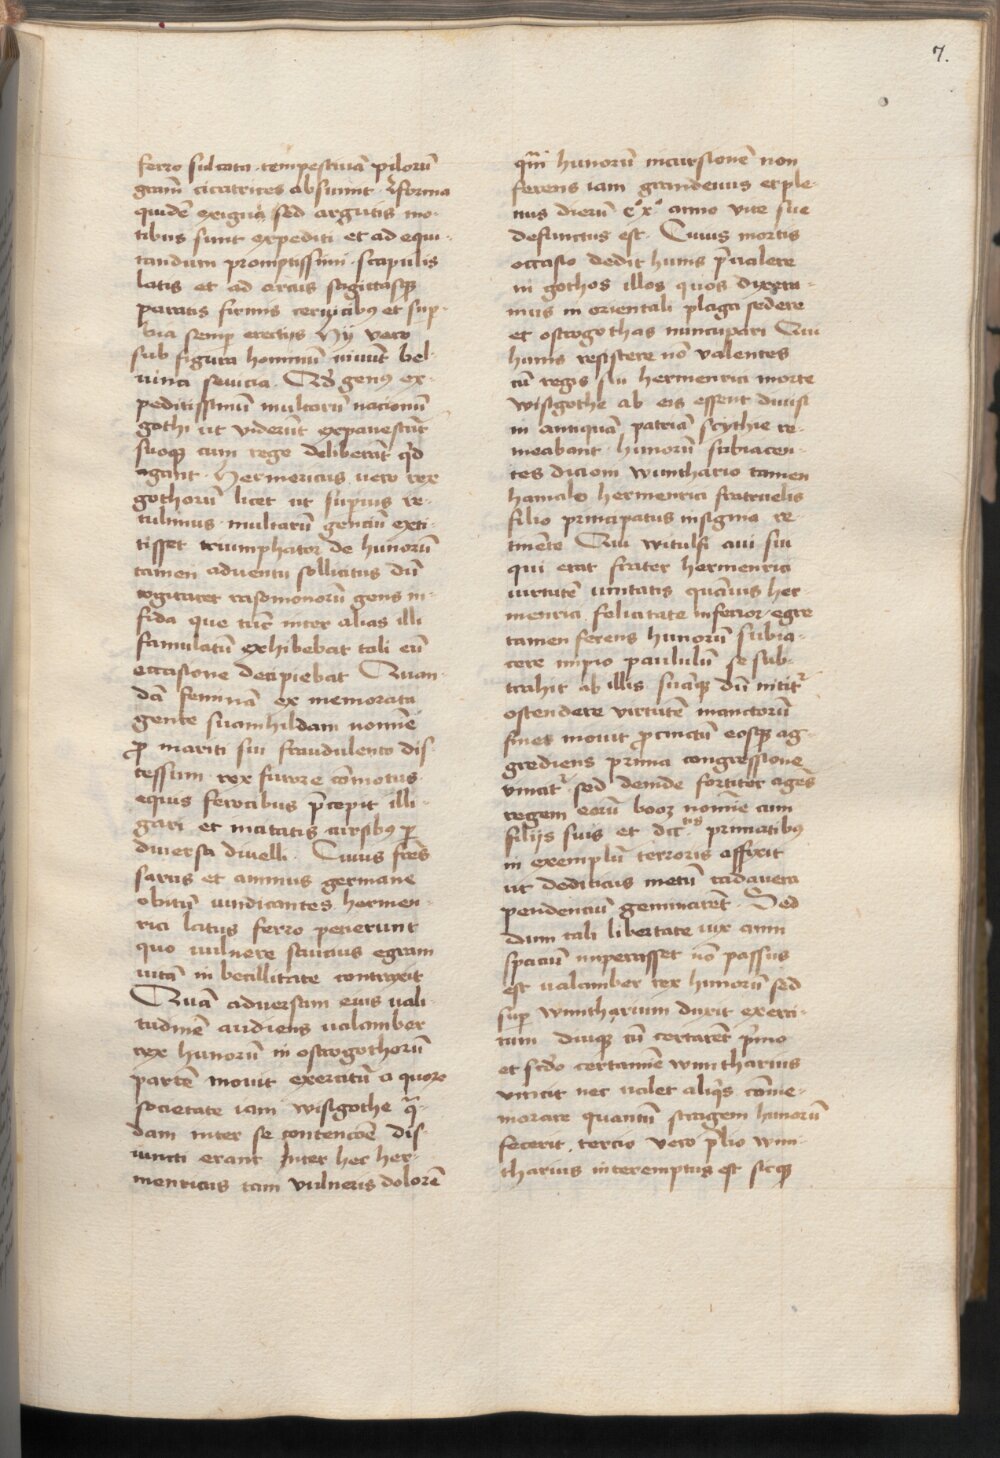 7.
ferro sulcata tempestiuā pilorū
graciā cicatrices absumit · forma
quidē exigua sed argutis mo-
tibus sunt expediti et ad equi-
tandum promptissimi · scapulis
latis et ad arcus sagittasqꝫ
paratis firmis ceruicibꝰ et sup-
bia semp erectis Hij vero
sub figura hominū viuūt bel-
uina seuicia · Qd̓ genꝰ ex-
peditissimū multarū nacionū
gothi ut viderūt expauescūt
suoqꝫ cum rege deliberāt qd̓
agant · Hermericus uero rex
gothorū licet ut supius re-
tulimus · multarū genciū exti-
tisset triumphator de hunorū
tamen aduentu sollicitus dū
cogitaret rasomonorū gens in-
fida que tūc inter alias illi
famulatū exhibebat tali eū
occasione decipiebat Quan
dā feminā ex memorata
gente suamhildam nomīe
ꝓ mariti sui fraudulento dis-
cessum · rex furore cōmotus
equis ferocibus p̄cepit illi-
gari et incitatis cursibꝰ ꝑ
diuersa diuelli · Cuius fr̄es
sarus et ammus germane
obitū uindicantes hermen-
rici latus ferro pecierunt
quo uulnere saucius egram
uitā in becillitate contraxit
Quā aduersam eius uali-
tudinē audiens ualamber
rex hunorū in ostrogothorū
partē mouit exercitū a quorū
societate iam wisigothe q̄-
dam inter se contencōe dis-
iuncti erant Inter hec her-
menricus tam vulneris dolorē
qm̄ hunorū incursionē non
ferens iam grandeuus et ple-
nus dierū cͦxͦ anno vite sue
defunctus est · Cuius mortis
occasio dedit hunis p̄ualere
in gothos illos quos dixera-
mus in orientali plaga sedere
et ostrogothas nuncupari Qui
hunis resistere nō valentes
cū regis sui hermenrici morte
wisigothe ab eis essent diuisi
in antiquā patriā scythie re-
meabant · hunorū subiacen-
tes dicioni winithario tamen
hamalo hermenrici fratruelis
filio principatus insignia re-
tinēte Qui witulfi aui sui
qui erat frater hermenrici
uirtutē imitatis quāuis her-
menrici felicitate inferior · egre
tamen ferens hunorū subia-
cere impio paululū se sub-
trahit ab illis suāqꝫ dū nitit᷑
ostendere virtutē in anctorū
fines mouit ꝓcinctū eosqꝫ ag-
grediens prima congressione
vincit᷑ · sed deinde fortiter agēs
regem eorū booz nomīe cum
filijs suis et dcc tis primatibꝰ
in exemplū terroris affixit
ut dediticiis metū cadauera
pendenciū geminarēt · Sed
dum tali libertate uix anni
spaciū imperasset nō passus
est ualamber rex hunorū sed
sup winitharium duxit exerci-
tum diuqꝫ cū certarēt p̄mo
et scdo certamīe winitharius
vincit nec ualet aliqīs cōme-
morare quantū stragem hunorū
fecerit · tercio vero p̄lio wini-
tharius interemptus est sicqꝫ